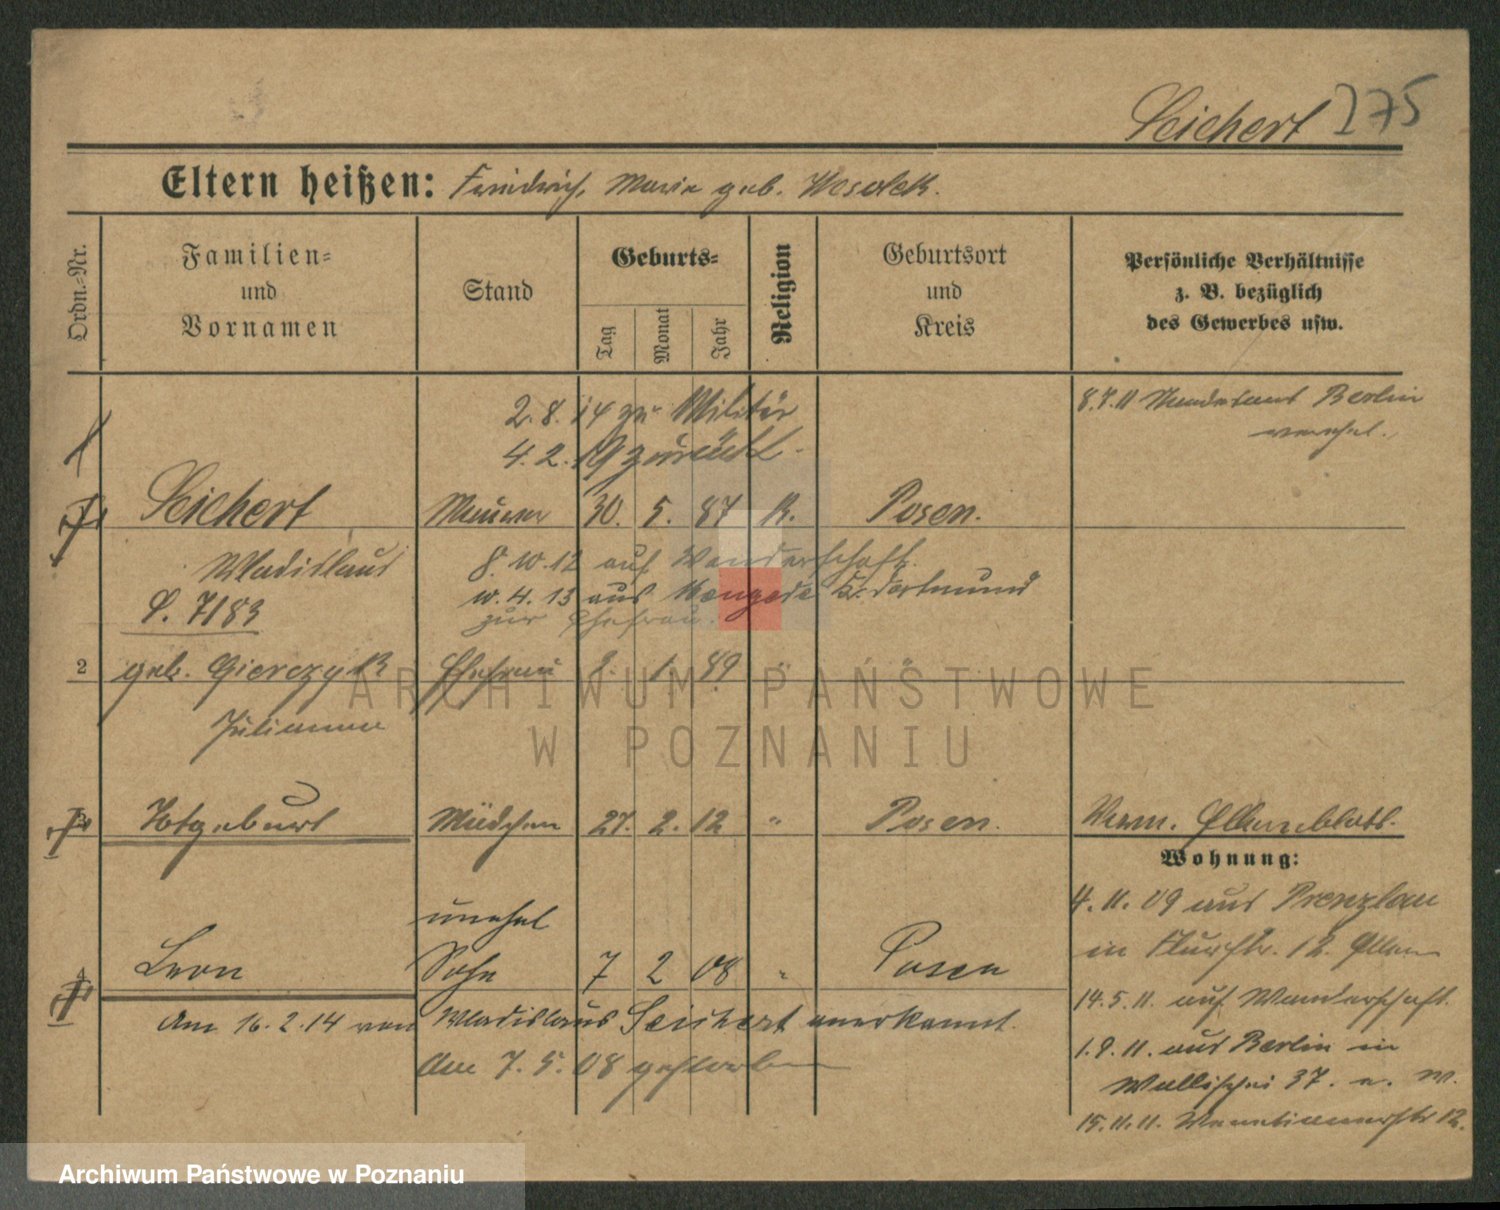 Seichert 275
Eltern heißen: Friedrich, Marie geb. Weselek.
Ordn.-Nr.
Familien-
und
Vornamen
Stand
Geburts-
Tag
Monat
Jahr
Religion
Geburtsort
und
Kreis
Persönliche Verhältnisse
z. B. bezüglich
des Gewerbes usw.
2.8.14 zu Militär
4.2.19 zurück.
8.7.11 Standesamt Berlin
verehel.
Seichert Maurer 30. 5. 87 K. Posen.
Wladislaus
S. 7183
8.10.12 auf Wanderschaft.
10.4.13 aus Mengede Kr. Dortmund
zur Ehefrau.
2 geb. Gierczyk Ehefrau 2. 1. 89 " "
Julianna
3 Totgeburt Mädchen 27. 2. 12 " Posen.
Verm. Elternblatt.
Wohnung:
unehel
4 Leon Sohn 7 2 08 " Posen
Am 16.2.14 von Wladislaus Seichert anerkannt.
Am 7.5.08 gestorben
4.11.09 aus Prenzlau
in 12. Eltern
14.5.11. auf Wanderschaft.
1.9.11. aus Berlin in
Wallischei 37. a. W.
15.11.11. Venetianerstr 12.
ARCHIWUM PAŃSTWOWE
W POZNANIU
Archiwum Państwowe w Poznaniu